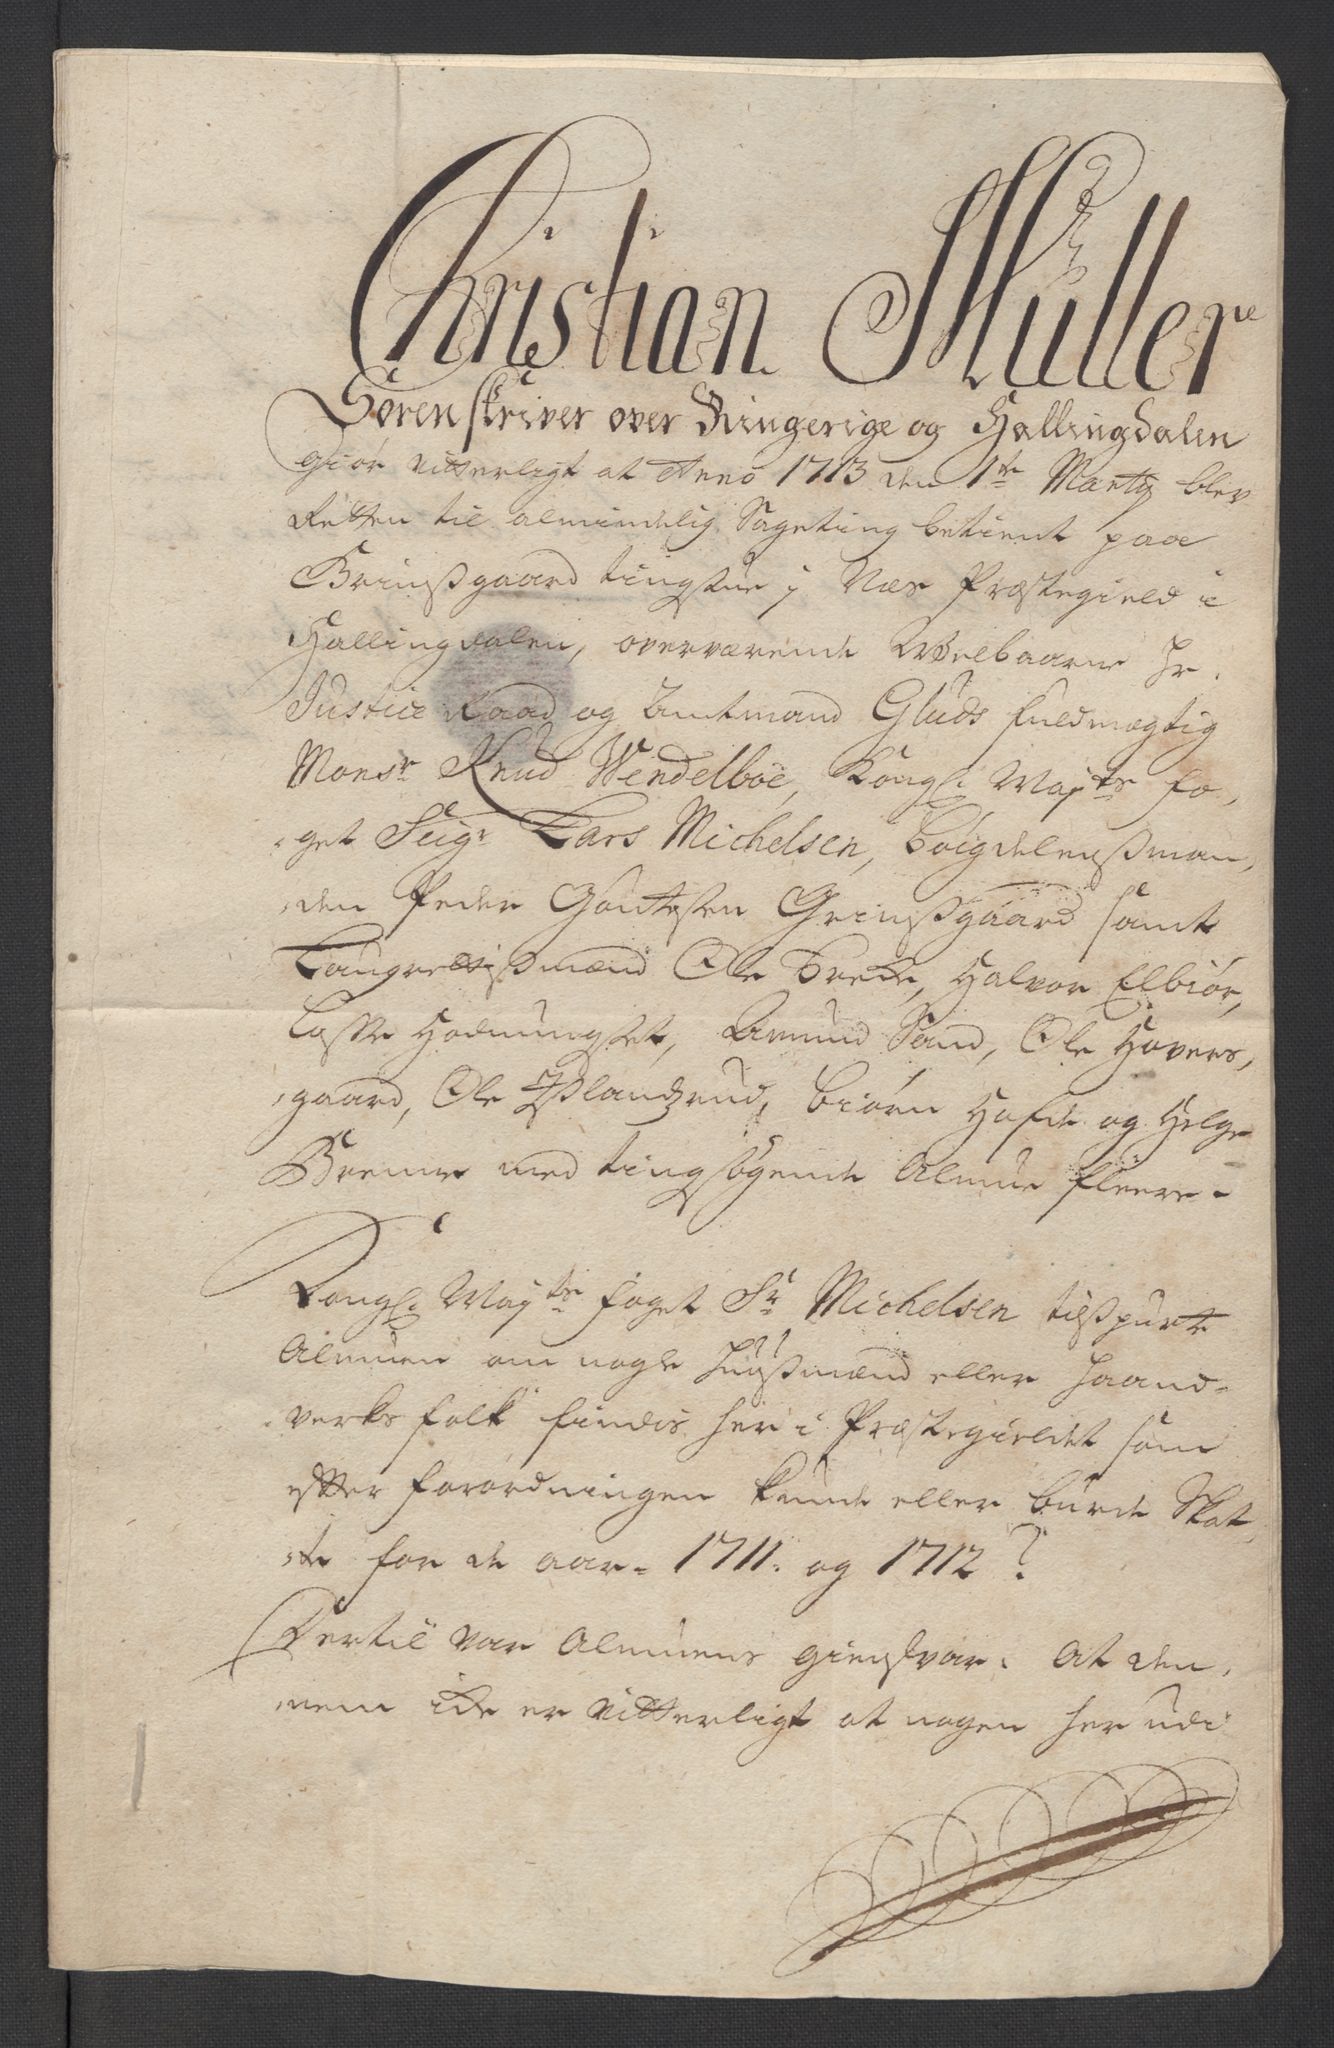 Christian Müller
Sorenskriver over Ringerige og Hallingdalen
giør vitterligt at Anno 1713 den 1te Marty blev
Retten til almindelig Sageting betient paa
Grinßgaard tingstue j Næs Præstegield i
Hallingdalen, overværende Welbaarne Hr.
Justice Raad og Amtmand Gluds fuldmægtig
Monsr Knud Wendelboe, Kongl: May:ts fo-
get Seigr Lars Michelsen, Boigdelenßman-
den Peder Gontesen Grinßgaard samt
Laugrettißmænd Ole Trette, Halvor Elbiør,
Lasse Hodnungset, Amund Sand, Ole Hovers-
gaard, Ole Ißlandzrud, Biørn Hafde og Helge
Breme med tingsøgende Almue fleere.
Kongl: May:ts foget Sr Michelsen tilßpurte
Almuen om nogle Huußmænd eller Haand-
verks folk findis her i Præstegieldet som
efter forordningen kunde eller burde Skat-
te for de aar. 1711. og 1712?
Dertil var Almuens giensvar. At den-
nem icke er vitterligt at nogen her udi